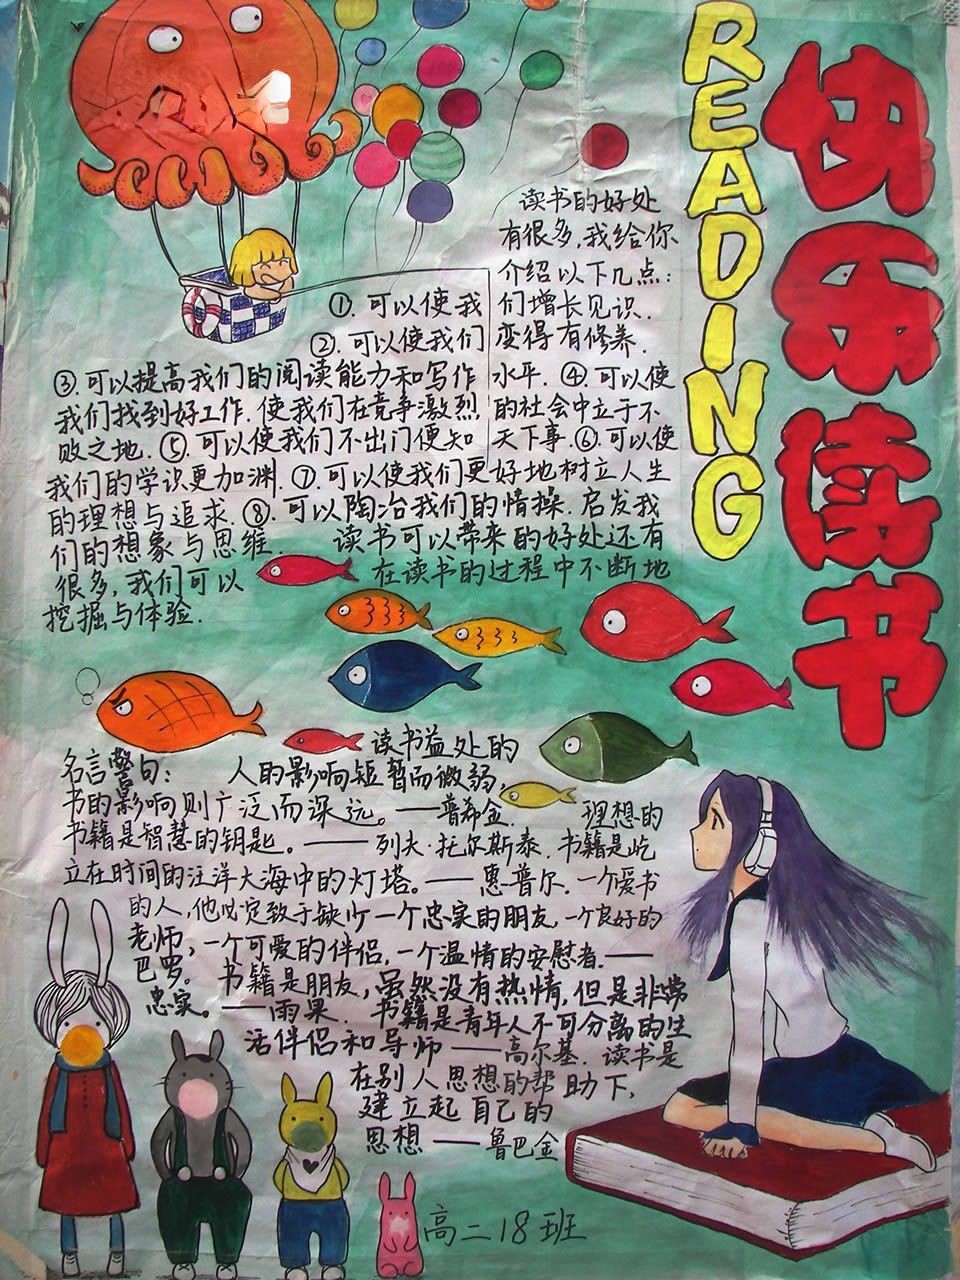 快乐读书
READING
读书的好处
有很多,我给你
介绍以下几点:
①.可以使我们增长见识.
②.可以使我们变得有修养.
③.可以提高我们的阅读能力和写作水平.④.可以使
我们找到好工作.使我们在竞争激烈的社会中立于不
败之地.⑤.可以使我们不出门便知天下事.⑥.可以使
我们的学识更加渊.⑦.可以使我们更好地树立人生
的理想与追求.⑧.可以陶冶我们的情操.启发我
们的想象与思维.读书可以带来的好处还有
很多,我们可以在读书的过程中不断地
挖掘与体验.
读书益处的
名言警句:人的影响短暂而微弱,
书的影响则广泛而深远。——普希金.理想的
书籍是智慧的钥匙。——列夫·托尔斯泰.书籍是屹
立在时间的汪洋大海中的灯塔。——惠普尔.一个爱书
的人,他必定致于缺少一个忠实的朋友,一个良好的
老师,一个可爱的伴侣,一个温情的安慰者.——
巴罗。书籍是朋友,虽然没有热情,但是非常
忠实。——雨果.书籍是青年人不可分离的生
活伴侣和导师——高尔基.读书是
在别人思想的帮助下,
建立起自己的
思想——鲁巴金
高二18班